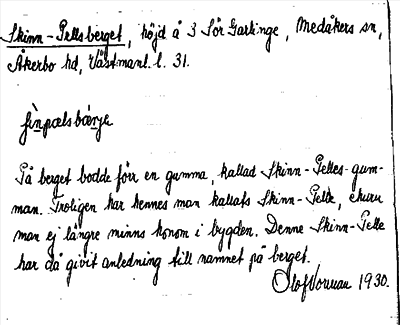 Skinn-Pellesberget, höjd å 3 Sör Gärlinge, Medåkers sn,
Åkerbo hd, Västmanl. l. 31.
ʃìnpælsbærje
På berget bodde förr en gumma, kallad Skinn-Pelles-gum-
man. Troligen har hennes man kallats Skinn-Pelle, ehuru
man ej längre minns honom i bygden. Denne Skinn-Pelle
har då givit anledning till namnet på berget.
Olof Vorman 1930.